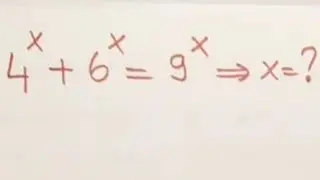 4^x + 6^x = 9^x ⇒ x = ?